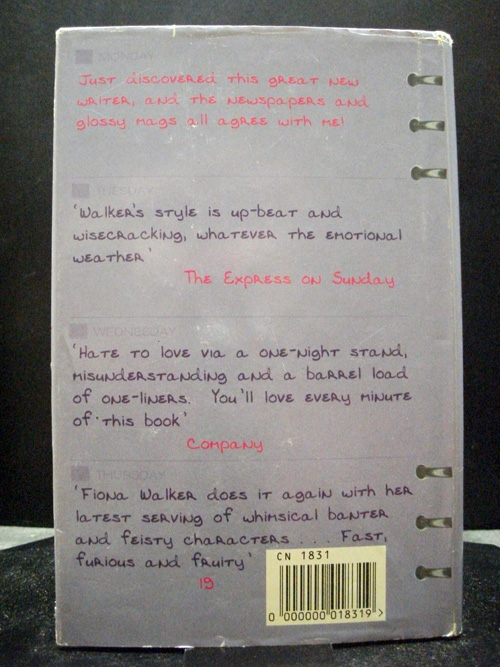 MONDAY
Just discovered this great new
writer, and the newspapers and
glossy mags all agree with me!
TUESDAY
'Walker's style is up-beat and
wisecracking, whatever the emotional
weather'
The Express on Sunday
WEDNESDAY
'Hate to love via a one-night stand,
misunderstanding and a barrel load
of one-liners. You'll love every minute
of this book'
Company
THURSDAY
'Fiona Walker does it again with her
latest serving of whimsical banter
and feisty characters . . . Fast,
furious and fruity'
19
CN 1831
0 000000 018319 >